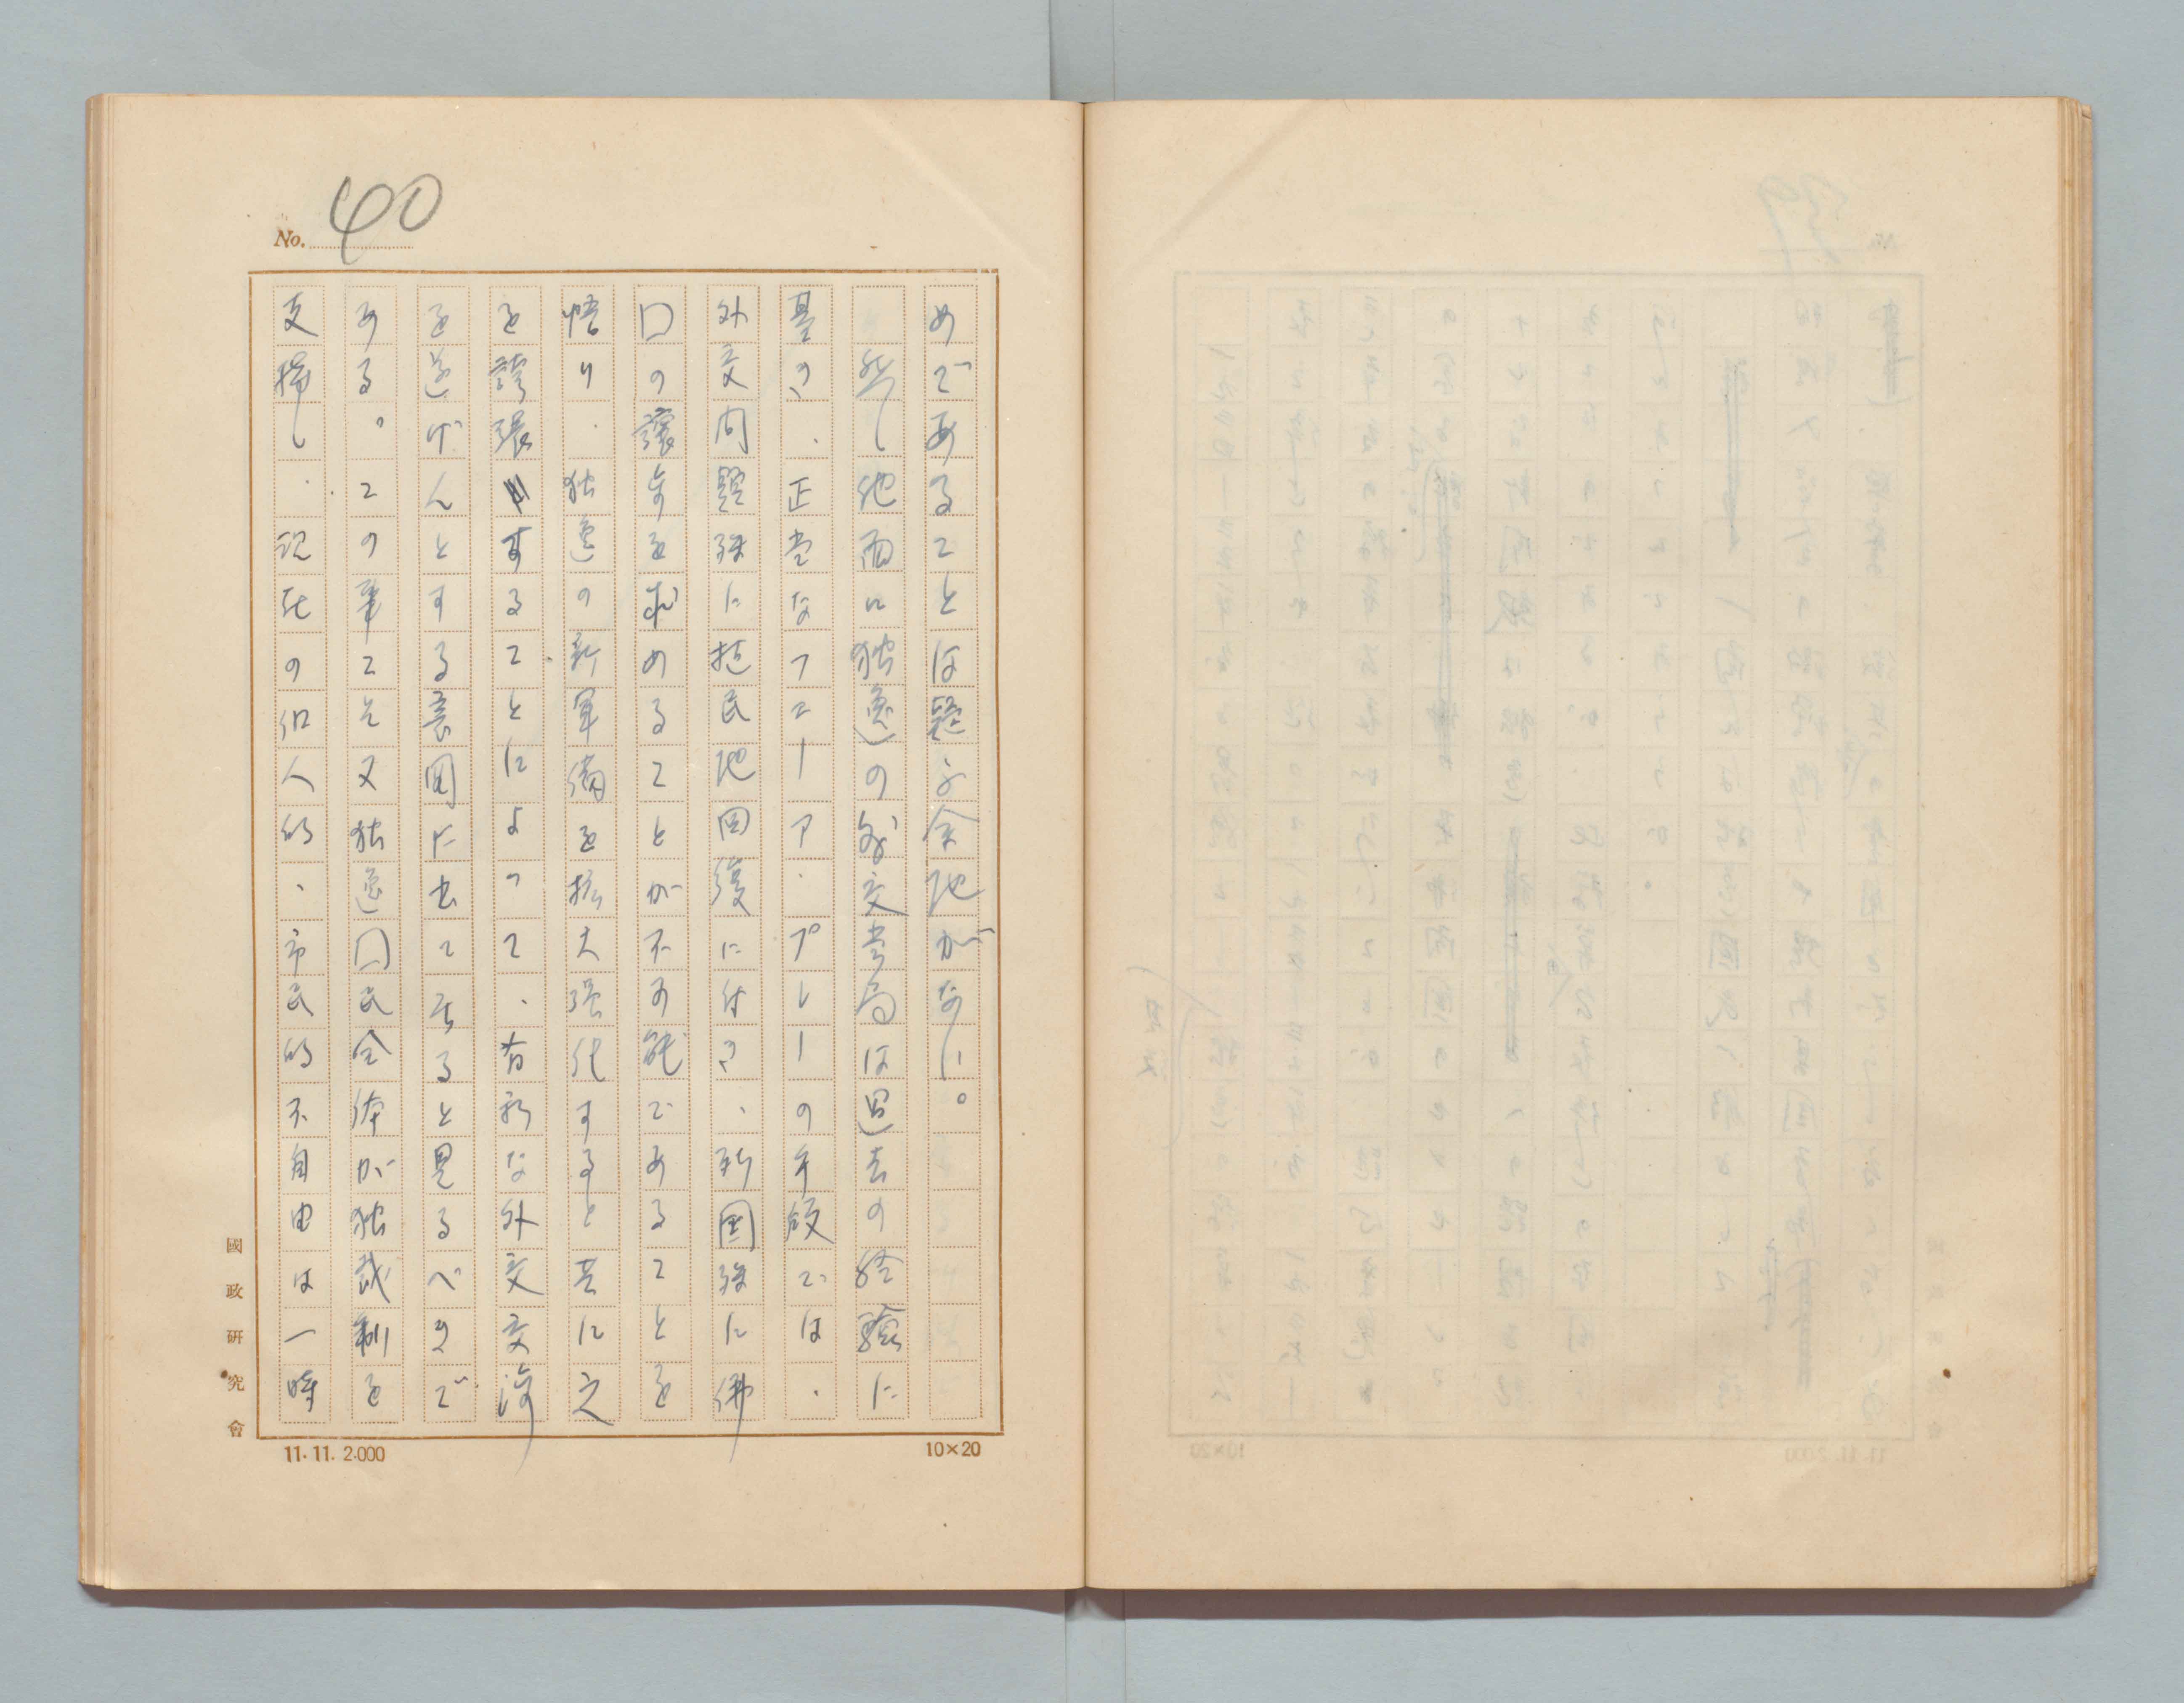 No. 40
めであることは疑ふ余地がない。
然し他面に独逸の外交当局は過去の経験に
基き、正当なフエーア、プレーの手段では、
外交問題殊に植民地回復に付き、新国殊に佛
国の譲歩を求めることが不可能であることを
悟り、独逸の新軍備を拡大強化すると共に之
を誇張することによつて、有利な外交交渉
を遂げんとする意図に出て居ると見るべきで
ある。この事こそ又独逸国民全体が独裁制を
支持し、現在の個人的、市民的不自由は一時
國政研究會
11.11.2.000
10×20